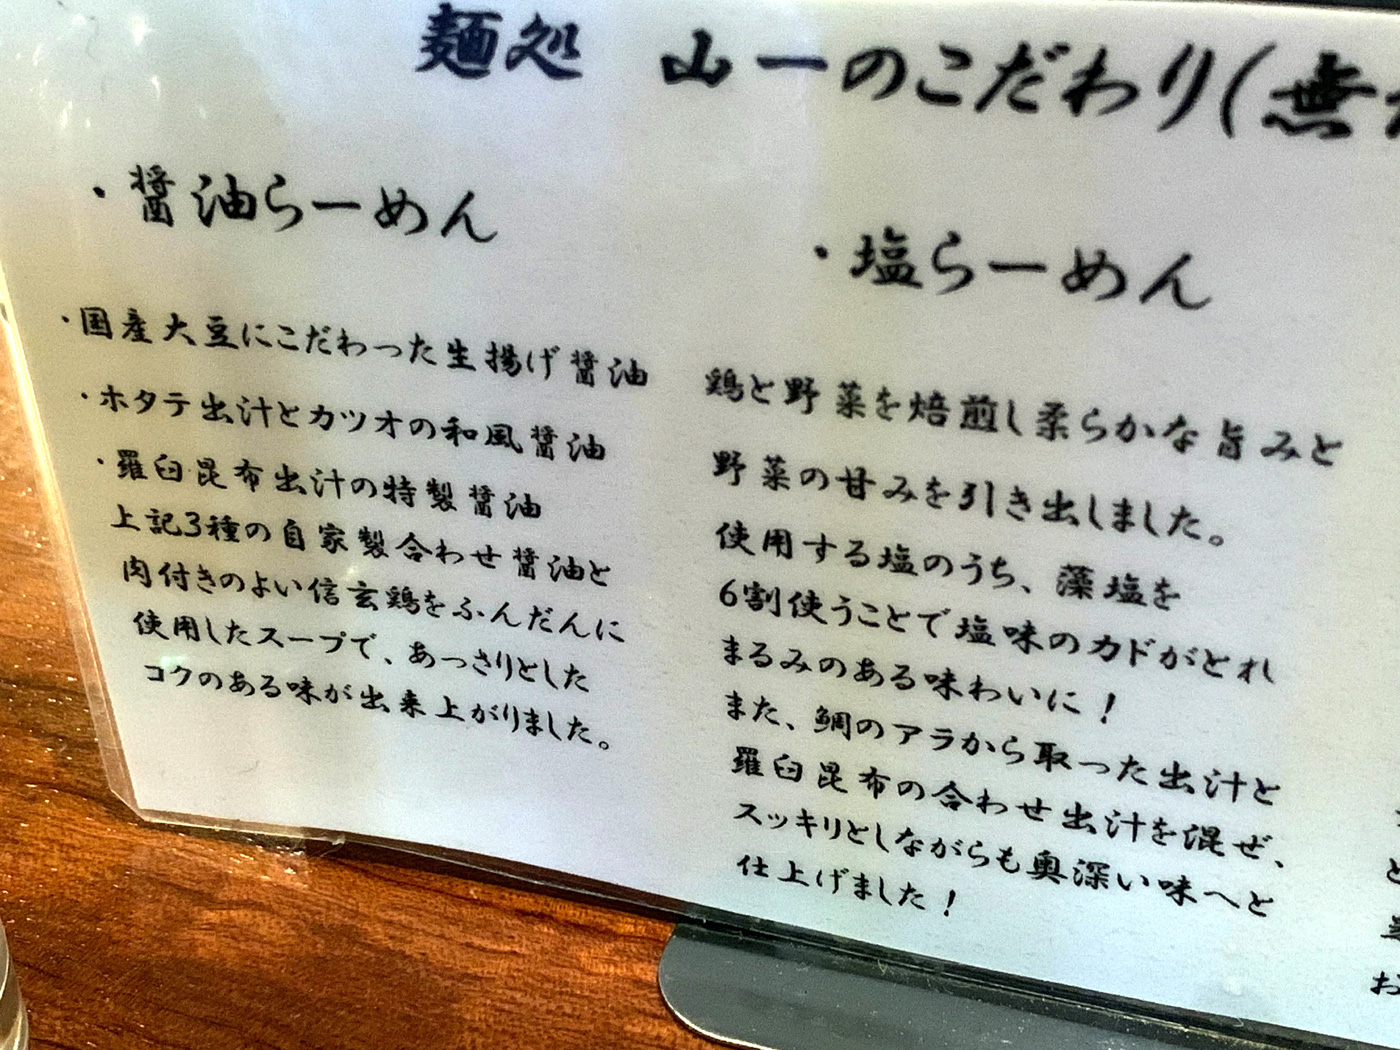 麺処 山一のこだわり(無
・醤油らーめん
・国産大豆にこだわった生揚げ醤油
・ホタテ出汁とカツオの和風醤油
・羅臼昆布出汁の特製醤油
上記3種の自家製合わせ醤油と
肉付きのよい信玄鶏をふんだんに
使用したスープで、あっさりとした
コクのある味が出来上がりました。
・塩らーめん
鶏と野菜を焙煎し柔らかな旨みと
野菜の甘みを引き出しました。
使用する塩のうち、藻塩を
6割使うことで塩味のカドがとれ
まるみのある味わいに！
また、鯛のアラから取った出汁と
羅臼昆布の合わせ出汁を混ぜ、
スッキリとしながらも奥深い味へと
仕上げました！
と
お